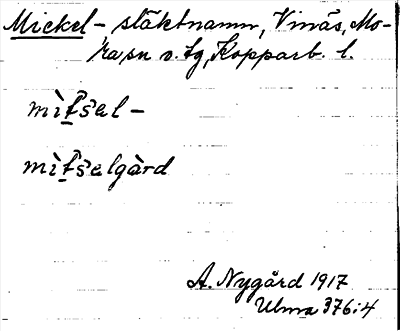 Mickel- släktnamn, Vinäs, Mo-
ra sn o. tg, Kopparb. l.
mìt̠s̆el-
mìt̠s̆elgàrd
A. Nygård 1917
Ulma 376:4